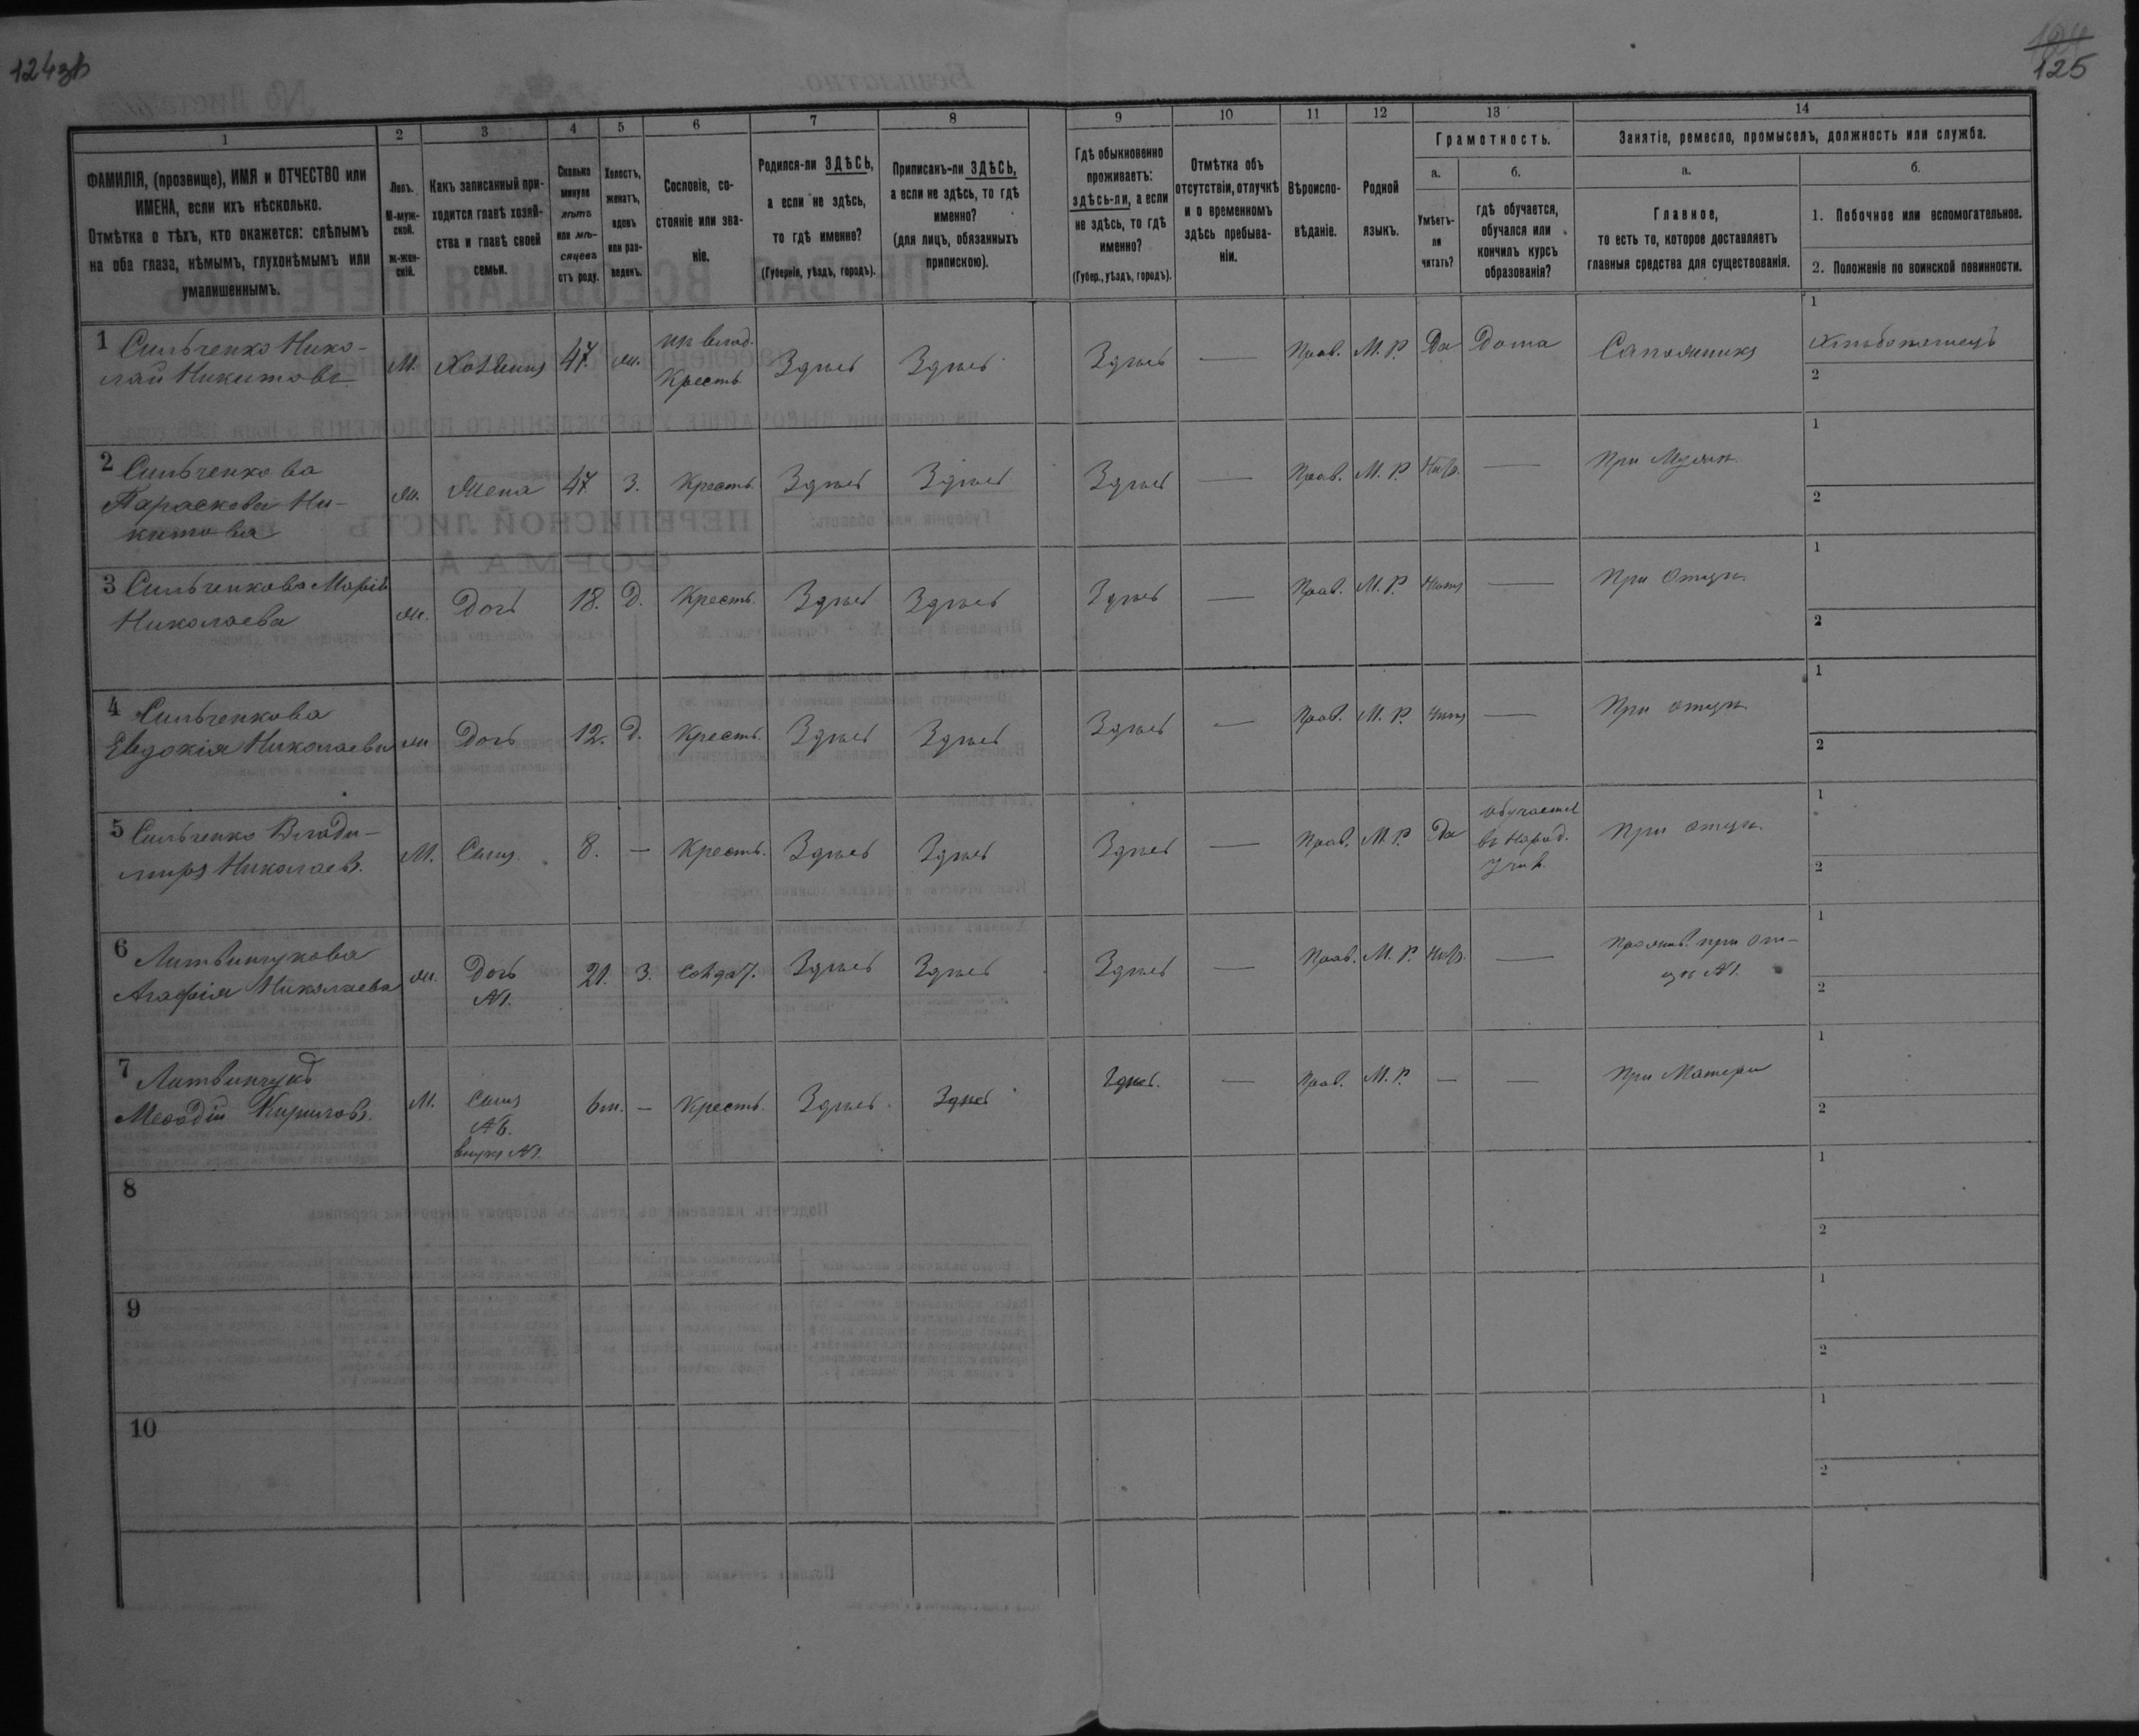 124зв
124
125
1
2
3
4
5
6
7
8
9
10
11
12
13
14
ФАМИЛІЯ, (прозвище), ИМЯ и ОТЧЕСТВО или
ИМЕНА, если ихъ нѣсколько.
Отмѣтка о тѣхъ, кто окажется: слѣпымъ
на оба глаза, нѣмымъ, глухонѣмымъ или
умалишеннымъ.
Полъ.
М-муж-
ской.
ж-жен-
скій.
Какъ записанный при-
ходится главѣ хозяй-
ства и главѣ своей
семьи.
Сколько
минуло
лѣтъ
или мѣ-
сяцевъ
отъ роду.
Холостъ,
женатъ,
вдовъ
или раз-
веденъ.
Сословіе, со-
стояніе или зва-
ніе.
Родился-ли ЗДѢСЬ,
а если не здѣсь,
то гдѣ именно?
(Губернія, уѣздъ, городъ).
Приписанъ-ли ЗДѢСЬ,
а если не здѣсь, то гдѣ
именно?
(для лицъ, обязанныхъ
припискою).
Гдѣ обыкновенно
проживаетъ:
здѣсь-ли, а если
не здѣсь, то гдѣ
именно?
(Губер., уѣздъ, городъ).
Отмѣтка объ
отсутствіи, отлучкѣ
и о временномъ
здѣсь пребыва-
ніи.
Вѣроиспо-
вѣданіе.
Родной
языкъ.
Грамотность.
а.
Умѣетъ-
ли
читать?
б.
гдѣ обучается,
обучался или
кончилъ курсъ
образованія?
Занятіе, ремесло, промыселъ, должность или служба.
а.
Главное,
то есть то, которое доставляетъ
главныя средства для существованія.
б.
1. Побочное или вспомогательное.
2. Положеніе по воинской повинности.
1 Сильченко Нико-
лай Никитовъ
М. Хозяинъ 47. ж.
Кресть.
Здѣсь Здѣсь Здѣсь — Прав. М. Р. Да Дома Сапожникъ
1 Хлѣбопашецъ
2
2 Сильченкова
Параскева Ни-
китова
ж. Жена 47 З. Кресть. Здѣсь Здѣсь Здѣсь — Прав. М. Р. — При Мужѣ
1
2
3 Сильченкова Марія
Николаева
ж. Дочь 18. Д. Кресть. Здѣсь Здѣсь Здѣсь — Прав. М. Р. Нѣтъ — При Отцѣ
1
2
4 Сильченкова
Евдокія Николаева
ж Дочь 12. Д. Кресть. Здѣсь Здѣсь Здѣсь — Прав. М. Р. Нѣтъ — При отцѣ
1
2
5 Сильченко Влади-
миръ Николаев.
М. Сынъ. 8. — Кресть. Здѣсь Здѣсь Здѣсь — Прав. М. Р. Да
обучается
въ Народ.
Учил.
При отцѣ
1
2
6 Литвинчукова
Агафія Николаева
ж. Дочь
№1.
21. З. Здѣсь Здѣсь Здѣсь — Прав. М. Р. —
при от-
цѣ №1.
1
2
7 Литвинчукъ
Меѳодій Кирилов.
М. Сынъ
№6.
внукъ №1.
6м. — Кресть. Здѣсь Здѣсь Здѣсь. — Прав. М. Р. — — При Матери
1
2
8
1
2
9
1
2
10
1
2